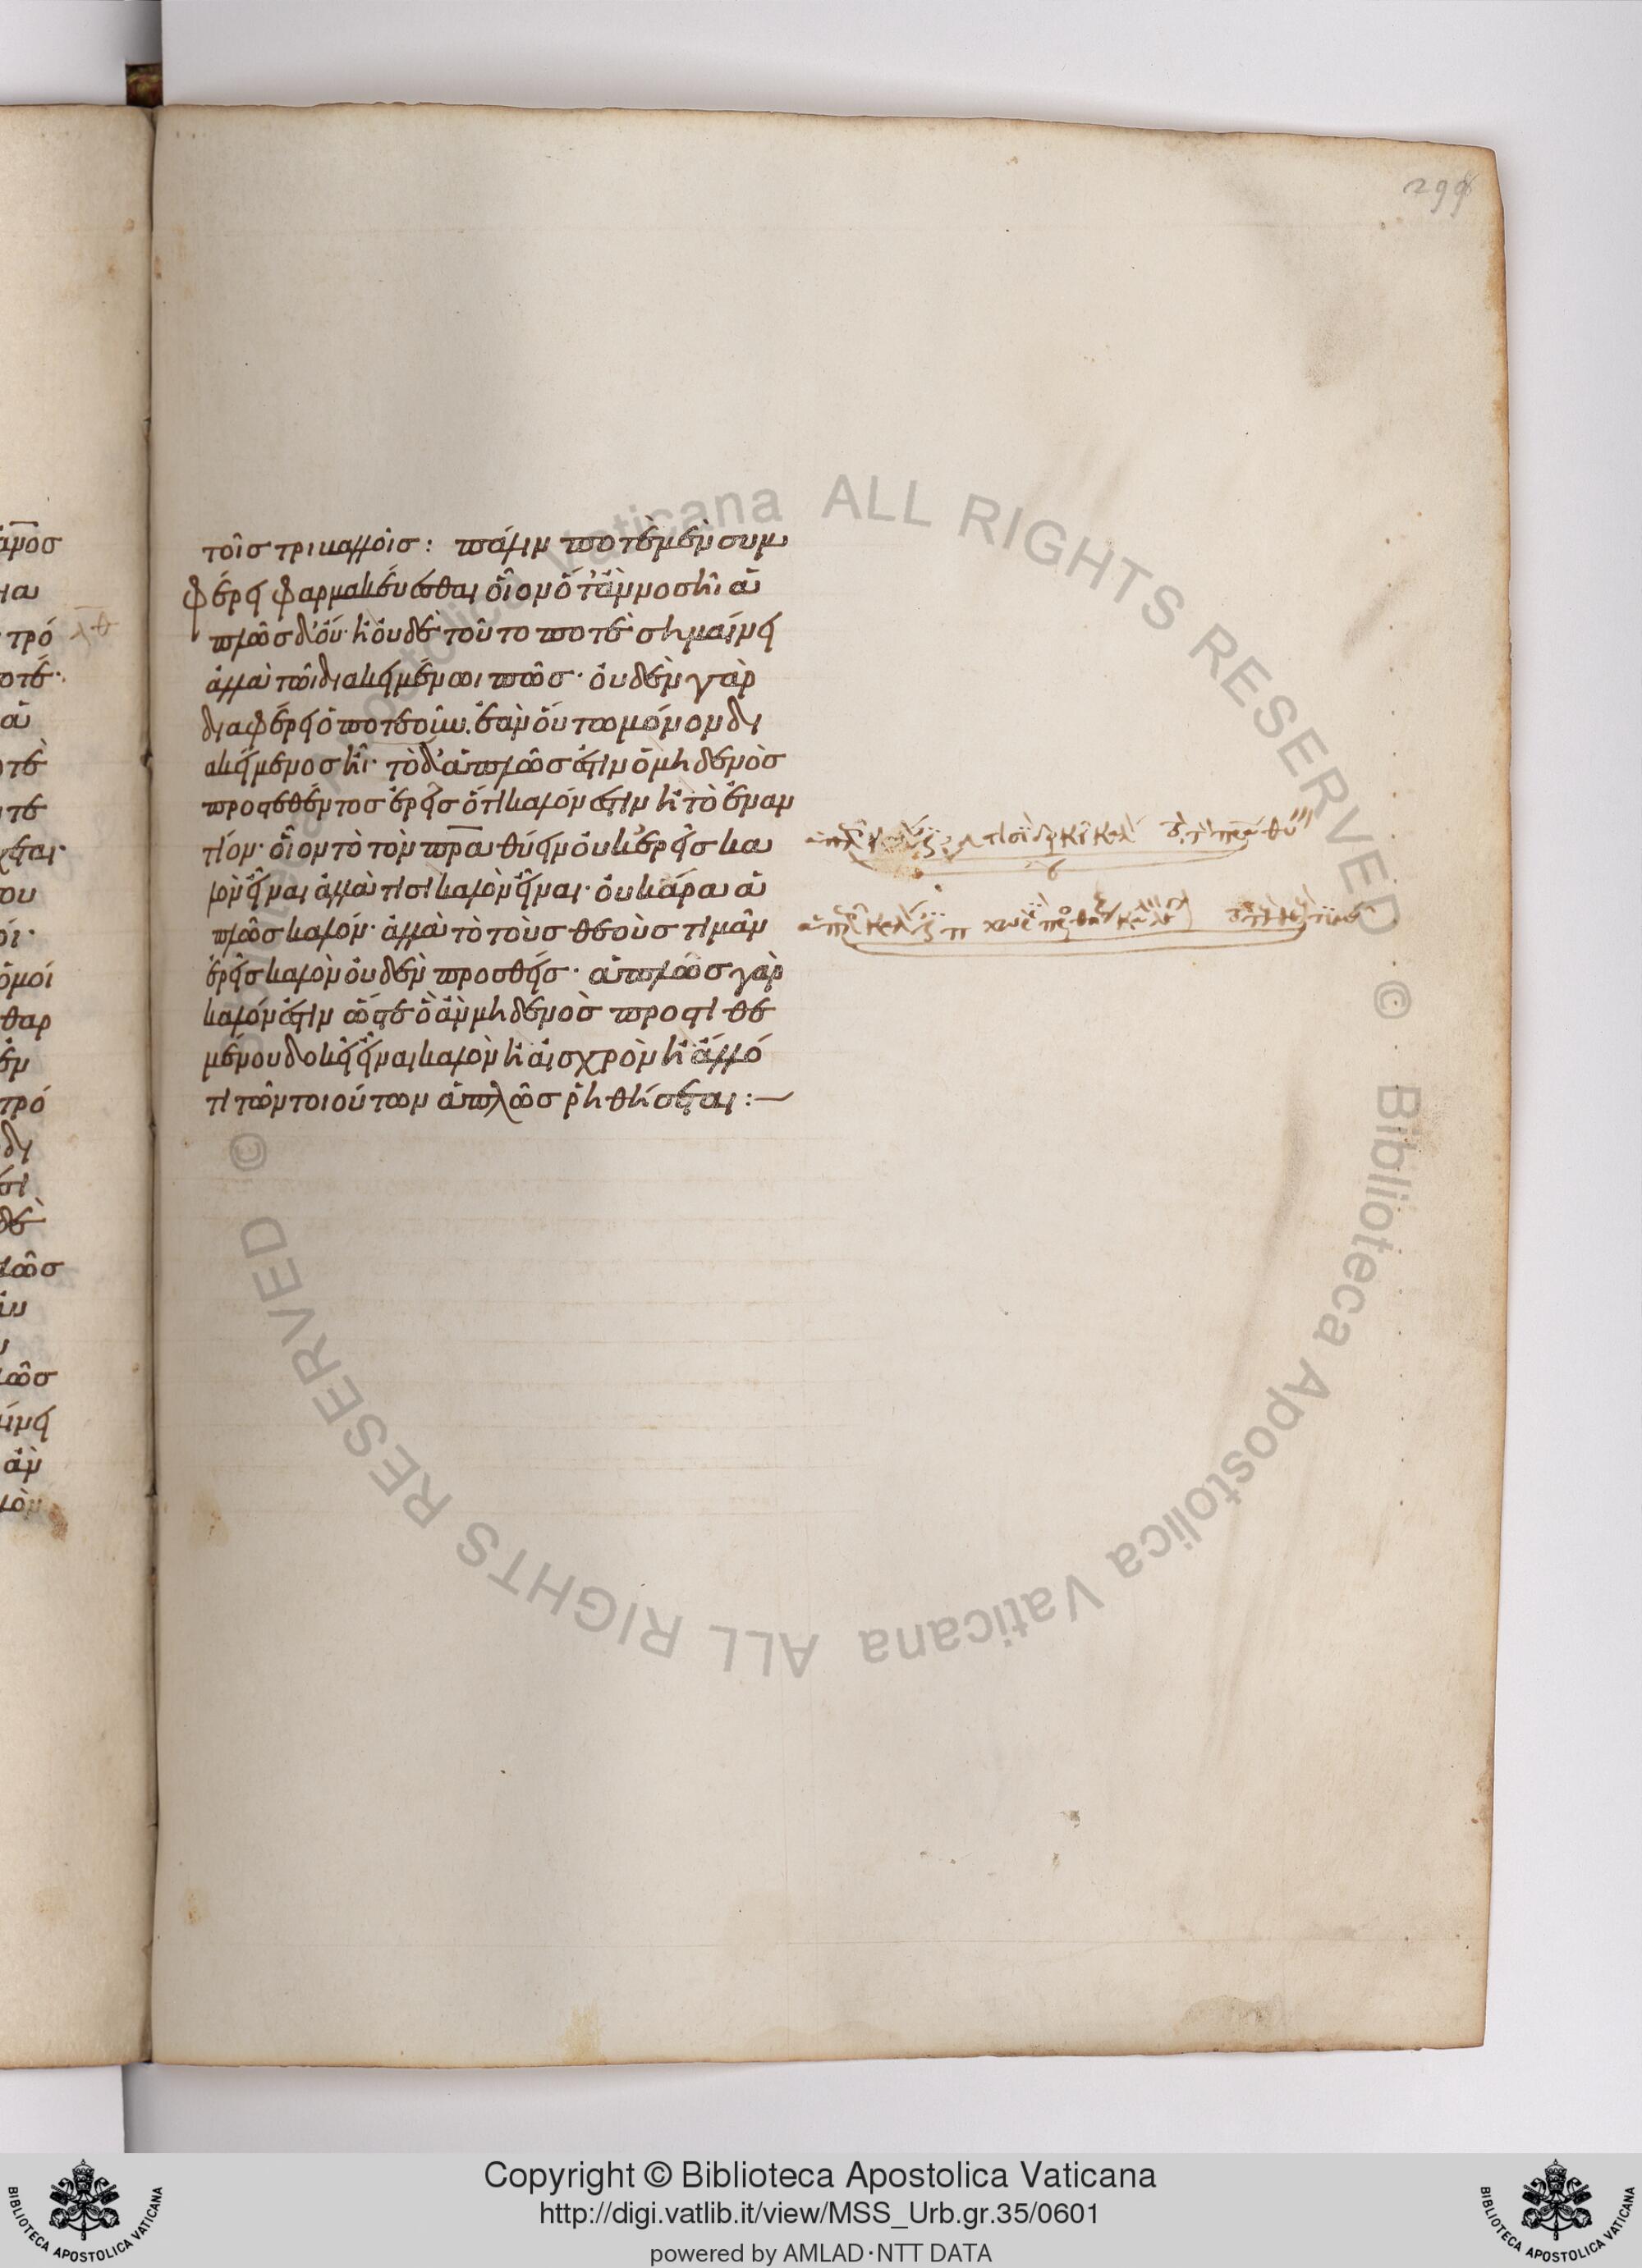 299
τοῖς τριβαλλοῖς: πάλιν ποτὲ μὲν συμ
φέρει φαρμακεύεσθαι οἷον ὅταν νοσῆι ἁ
πλῶς δ' οὔ· ἢ οὐδὲ τοῦτο ποτὲ σημαίνει
ἀλλὰ τῶι διακειμένωι πῶς· οὐδὲν γὰρ
διαφέρει ὁποτεοῦν. ἐὰν οὕτω μόνον δι
ακείμενος ἦι· τὸ δ' ἁπλῶς ἐστὶν ὃ μηδενὸς
προστεθέντος ἐρεῖς ὅτι καλόν ἐστιν ἢ τὸ ἐναν
τίον· οἷον τὸ τὸν πρα θύειν οὐκ ἐρεῖς κα
λὸν εἶναι ἀλλὰ τισὶ καλὸν εἶναι· οὐκ ἄρα ἁ
πλῶς καλόν· ἀλλὰ τὸ τοὺς θεοὺς τιμᾶν
ἐρεῖς καλὸν οὐδὲν προσθείς· ἁπλῶς γὰρ
καλόν ἐστιν ὥστε ὃ ἂν μηδενὸς προστιθε
μένου δοκεῖ εἶναι καλὸν ἢ αἰσχρὸν ἢ ἄλλό
τι τῶν τοιούτων ἁπλῶς ῥηθήσεται:—
© Biblioteca Apostolica Vaticana ALL RIGHTS RESERVED
© Biblioteca Apostolica Vaticana ALL RIGHTS RESERVED
Copyright © Biblioteca Apostolica Vaticana
http://digi.vatlib.it/view/MSS_Urb.gr.35/0601
powered by AMLAD·NTT DATA
BIBLIOTECA APOSTOLICA VATICANA
BIBLIOTECA APOSTOLICA VATICANA